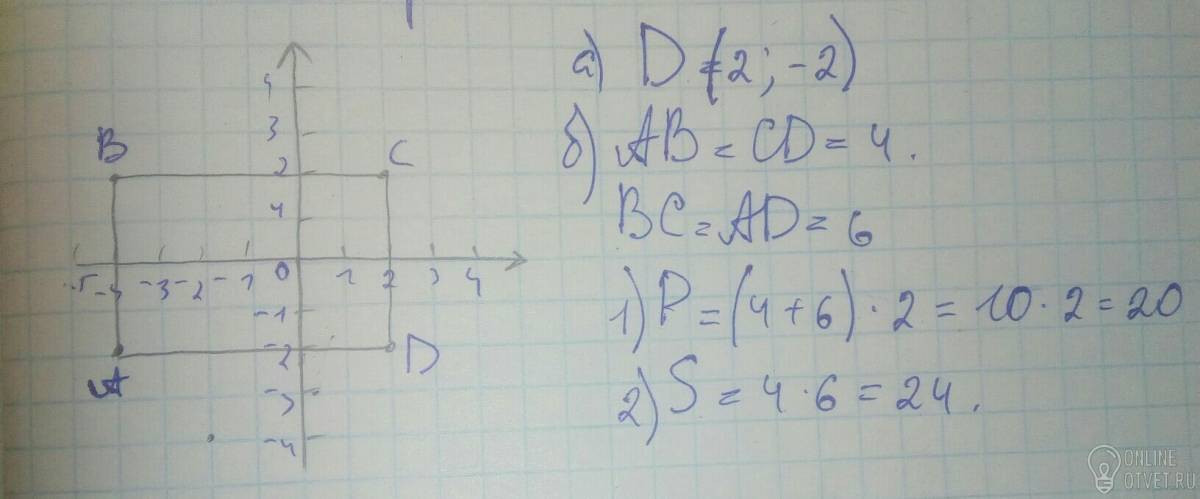 а) D (2; -2)
б) AB = CD = 4.
BC = AD = 6
1) P = (4 + 6) · 2 = 10 · 2 = 20
2) S = 4 · 6 = 24.
3
B C
2
-5 -4 -3 -2 -1 0 1 2 3 4
-1
-2
A D
-3
-4
ONLINE
OTVET.RU